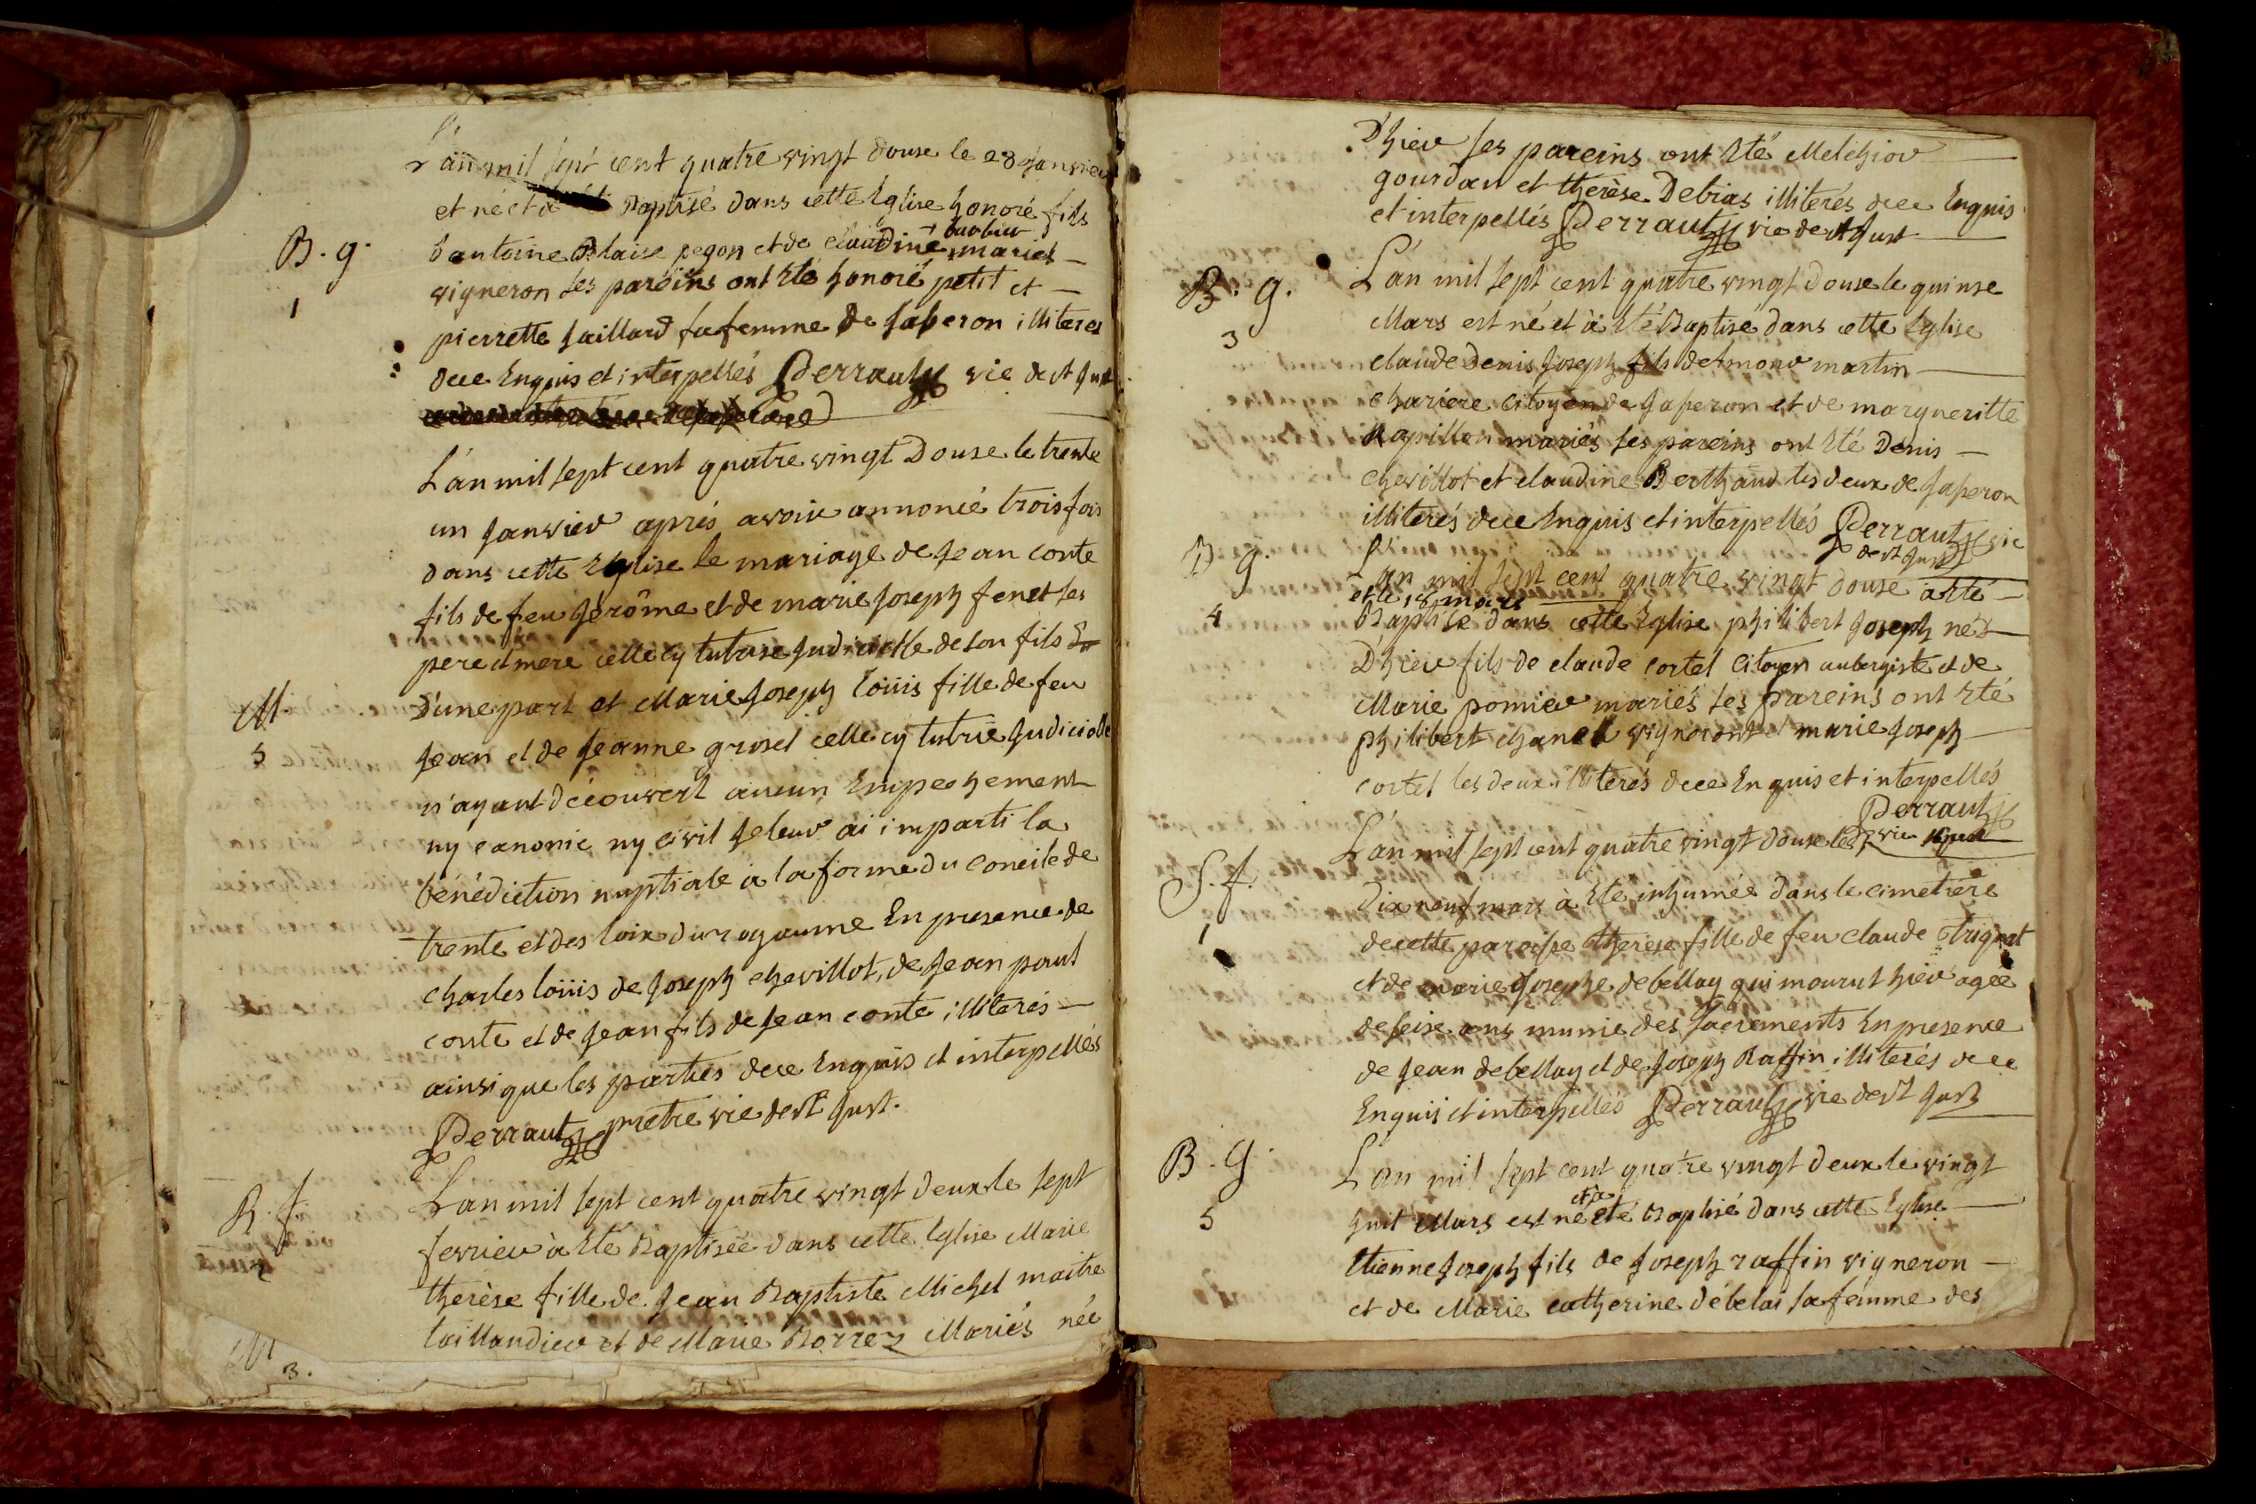 L'an mil sept cent quatre vingt douse le 28 janvier
et né et a Baptisé dans cette Eglise honoré fils
B. g. d'antoine Blaise pegon et de claudine mariés
1 vigneron ses pareins ont Eté honoré petit et
pierrette gaillard sa femme de saperon illiterés
dece Enquis et interpellés Perraut vic de st Just
L'an mil sept cent quatre vingt Douse le trente
un janvier aprés avoir annoncé trois fois
dans cette Eglise le mariage de jean conte
fils de feu jerôme et de marie joseph fenet ses
pere et mere celle cy tutrise judicielle de son fils
M. D'une part et Marie joseph loüis fille de feu
3 jean et de jeanne grosel celle cy tutrie judicielle
n'ayant découvert aucun Empechement
ny canonic ny civil je leur ai imparti la
bénédiction nuptiale à la forme du concile de
trente et des loix du royaume En presence de
charles loüis de joseph chevillot, de jean paul
conte et de jean fils de jean conte illiterés
ainsi que les parties dece Enquis et interpellés
Perraut pretre vic de st Just.
B. f. L'an mil sept cent quatre vingt deux le sept
2 fevrier à Eté Baptisée dans cette Eglise Marie
therèse fille de jean Baptiste Michel maitre
taillandier et de Marie Borrez Mariés née
M
3.
D'hier ses pareins ont Eté Melchior
gourdan et therèse Debias illiterés dece Enquis
et interpellés Perraut vic de st Just
B. g. L'an mil sept cent quatre vingt Douse le quinse
3 Mars est né et à Eté Baptisé dans cette Eglise
claude Denis joseph fils de simonv martin
chariere citoyen de saperon et de margueritte
papillon mariés ses pareins ont Eté Denis
chevillot et claudine Berthaud les deux de saperon
illiterés dece Enquis et interpellés Perraut vic
de st Just
B g. L'an mil sept cent quatre vingt douse à Eté
et le 18 mars
4 Baptisé dans cette Eglise philibert joseph né
D'hier fils de claude cortel citoyen aubergiste et de
Marie pomier mariés ses pareins ont Eté
philibert chanel vigneront et marie joseph
cortel les deux illiterés dece Enquis et interpellés
Perraut
L'an mil sept cent quatre vingt douse le vic
S. f. Dix neuf mars à Eté inhumée dans le cimetiere
1 de cette paroisse therese fille de feu claude trignat
et de marie josephe debellay qui mourut hier agée
de seise ans munie des sacrements En presence
de jean debellay et de joseph Raffin illiterés dece
Enquis et interpellés Perraut vic de st Just
B. g. L'an mil sept cent quatre vingt deux le vingt
et à
5 huit Mars est né eté Baptisé dans cette Eglise
Etienne joseph fils de joseph raffin vigneron
et de Marie catherine débelai sa femme des